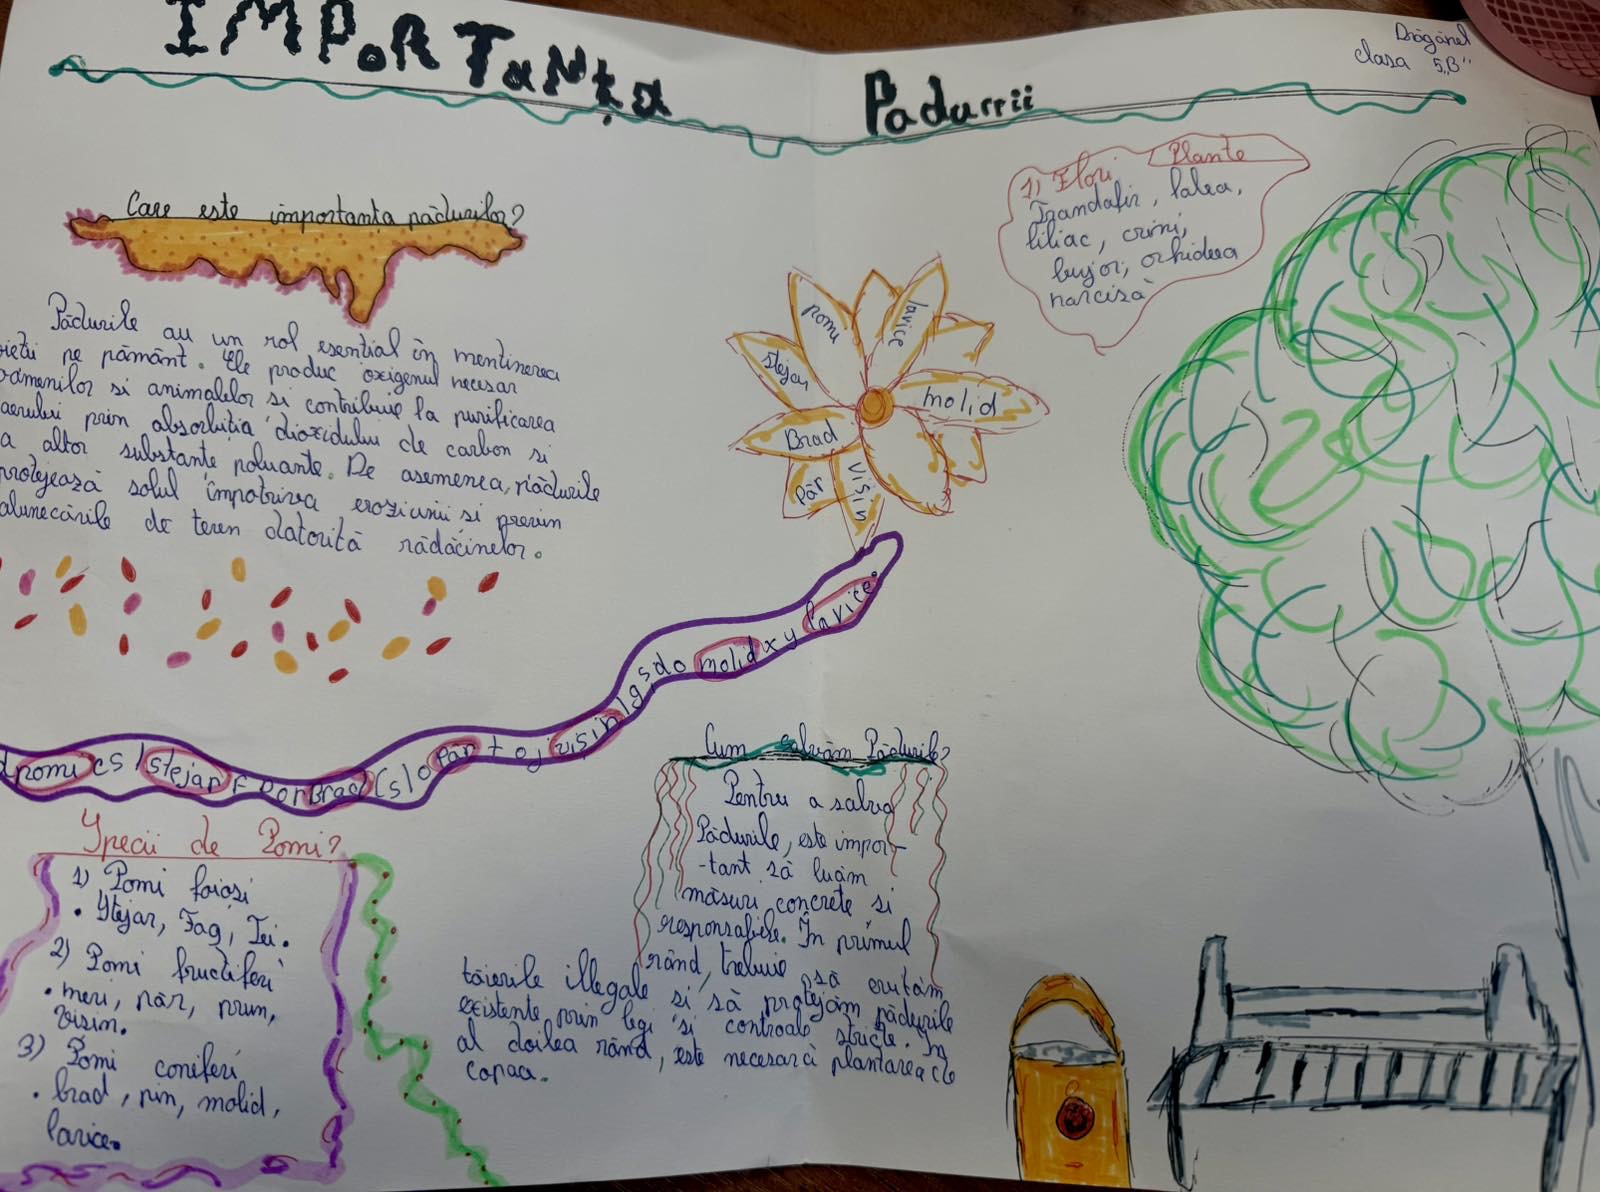 IMPORTANȚA Padurrii
Drăgănel
clasa 5„B”
Care este importanța pădurilor?
Pădurile au un rol esential în mentinerea
vietii pe pământ. Ele produc oxigenul necesar
oamenilor si animalelor si contribuie la purificarea
aerului prin absorbția dioxidului de carbon si
a altor substanțe poluante. De asemenea, pădurile
protejează solul împotriva eroziunii si previn
alunecările de teren datorită rădăcinelor.
Plante
1) Flori
Trandafir, lalea,
liliac, crini,
bujor, orhideea
narcisă
pomi
larice
stejar
molid
Brad
păr
vișin
pomi cs l stejar F Dor Brad C s l o Păr t o j vișin l g s d o molid x y larice.
Specii de Pomi?
1) Pomi foioși
• Stejar, Fag, Tei.
2) Pomi fructiferi
• meri, păr, prun,
vișin.
3) Pomi coniferi
• brad, pin, molid,
larice.
Cum salvăm Pădurile?
Pentru a salva
Pădurile, este impor-
-tant să luăm
măsuri concrete si
responsabile. În primul
rând, trebuie să evităm
tăierile illegale si să protejăm pădurile
existente prin legi si controale stricte. În
al doilea rând, este necesară plantarea de
copaci.